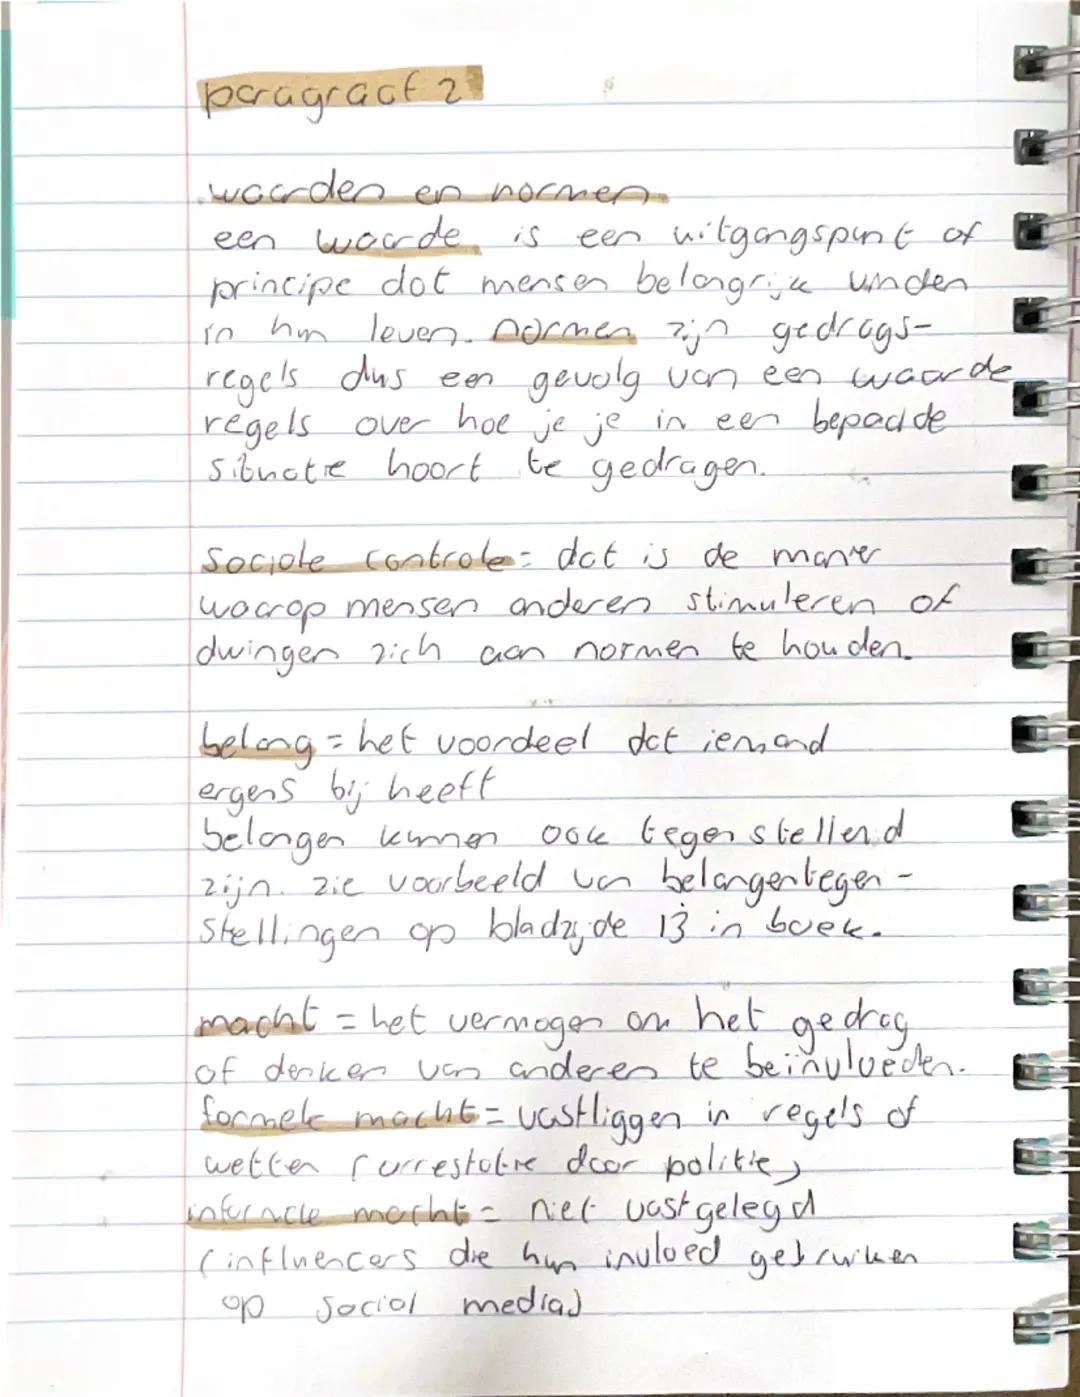 paragraaf 2
waarden en normen
een waarde is een uitgangspunt of
principe dat mensen belangrijk vinden
in hun leven. normen zijn gedrags-
regels dus een gevolg van een waarde
regels over hoe je je in een bepaalde
situatie hoort te gedragen.
Sociale controle = dat is de manier
waarop mensen anderen stimuleren of
dwingen zich aan normen te houden.
belang = het voordeel dat iemand
ergens bij heeft
belangen kunnen ook tegenstellend
zijn. zie voorbeeld van belangentegen-
stellingen op bladzijde 13 in boek.
macht = het vermogen om het gedrag
of denken van anderen te beïnvloeden.
formele macht = vastliggen in regels of
wetten (arrestatie door politie)
informele macht = niet vastgelegd
(influencers die hun invloed gebruiken
op social media)